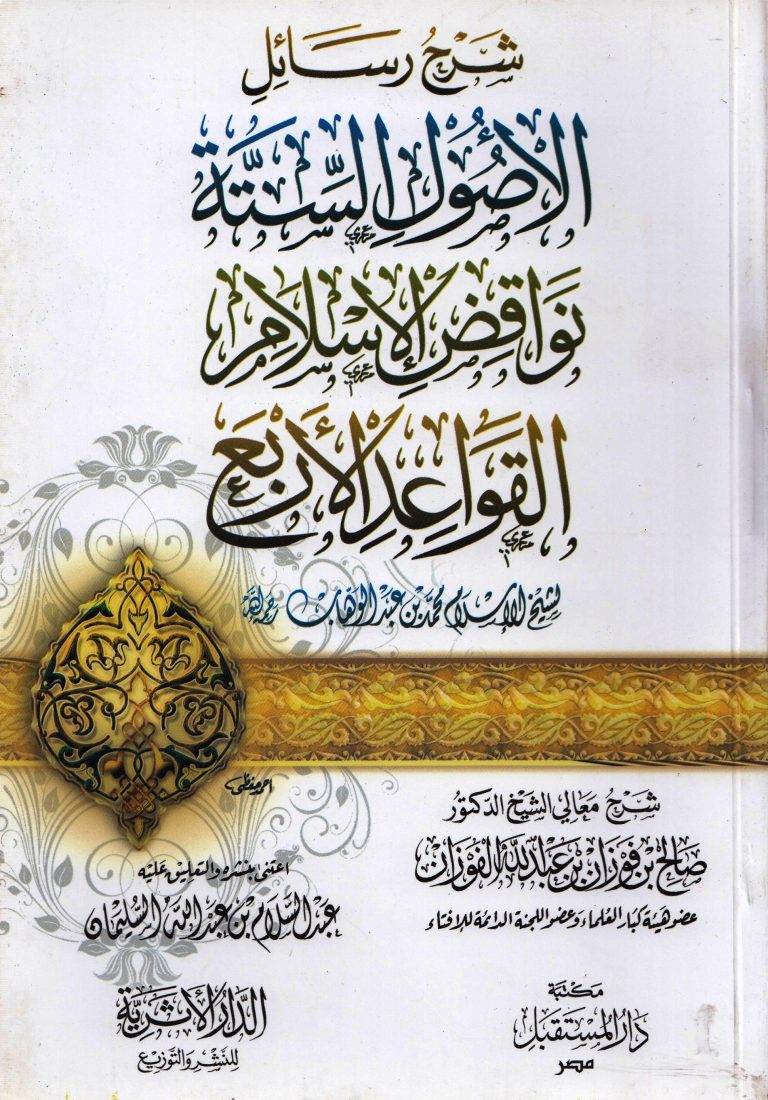 شرح رسائل
الأصول الستة
نواقض الإسلام
القواعد الأربع
لشيخ الإسلام محمد بن عبد الوهاب رحمه الله
شرح معالي الشيخ الدكتور
صالح بن فوزان بن عبد الله الفوزان
عضو هيئة كبار العلماء وعضو اللجنة الدائمة للإفتاء
اعتنى بنشره والتعليق عليه
عبد السلام بن عبد الله السليمان
مكتبة
دار المستقبل
مصر
الدار الأثرية
للنشر والتوزيع